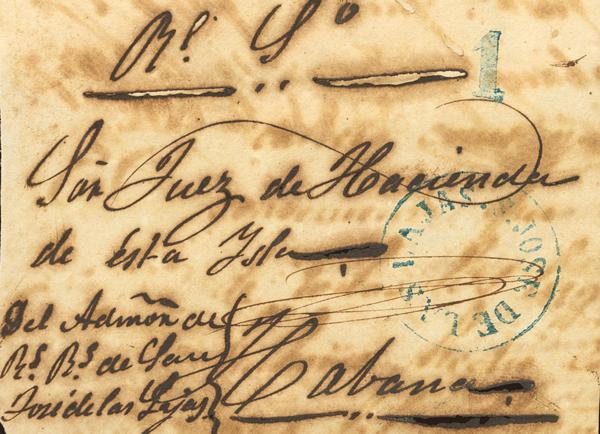 Rl. So
1
Sôr Juez de Hacienda
de ésta Ysla
Del Admōn de
Rs. Rs. de San
José de las Lajas
Habana
S. JOSE DE LAS LAJAS